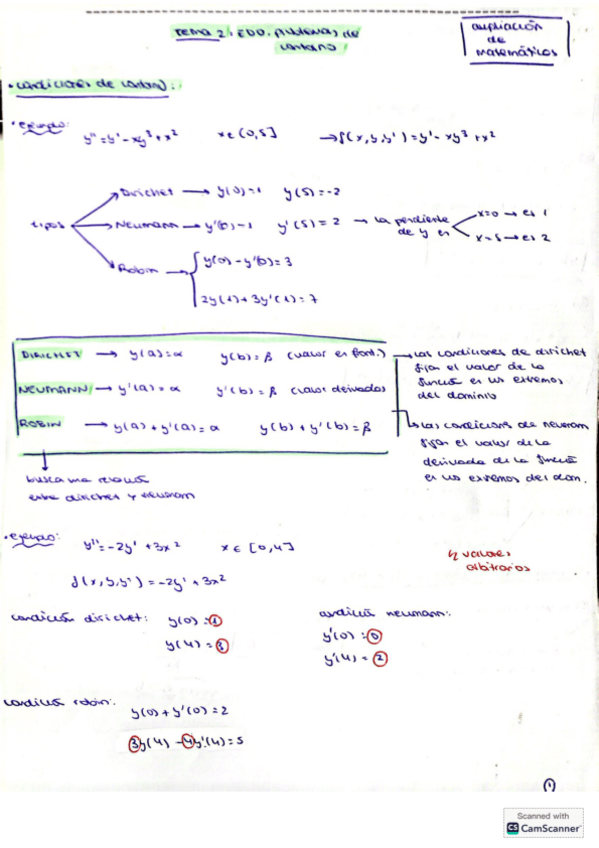 TEMA 2: EDO. Problemas de
contorno.
ampliación
de
matemáticas
• condiciones de contorno:
• ejemplo:
y'' = y' - xy³ + x²   x ∈ (0,5]   → f(x,y,y') = y' - xy³ + x²
tipos
Dirichet → y(0)=1   y(5)=-2
Neumann → y'(0)=1   y'(5)=2 → la pendiente
de y es
x=0 → es 1
x=5 → es 2
Robin → y(0) - y'(0) = 3
2y(1) + 3y'(1) = 7
DIRICHET → y(a)=α   y(b)=β (valor en front.)
NEUMANN → y'(a)=α   y'(b)=β (valor derivada)
ROBIN → y(a)+y'(a)=α   y(b)+y'(b)=β
→ las condiciones de dirichet
fijan el valor de la
función en los extremos
del dominio
→ las condiciones de neuman
fijan el valor de la
derivada de la función
en los extremos del dom.
busca una relación
entre dirichet y neuman
• ejemplo:
y'' = -2y' + 3x²   x ∈ [0,4]
f(x,y,y') = -2y' + 3x²
valores
arbitrarios
condición dirichet: y(0) = 1
y(4) = 3
condición neumann:
y'(0) = 0
y'(4) = 2
condición robin:
y(0) + y'(0) = 2
3y(4) - 4y'(4) = 5
1
Scanned with
CS CamScanner